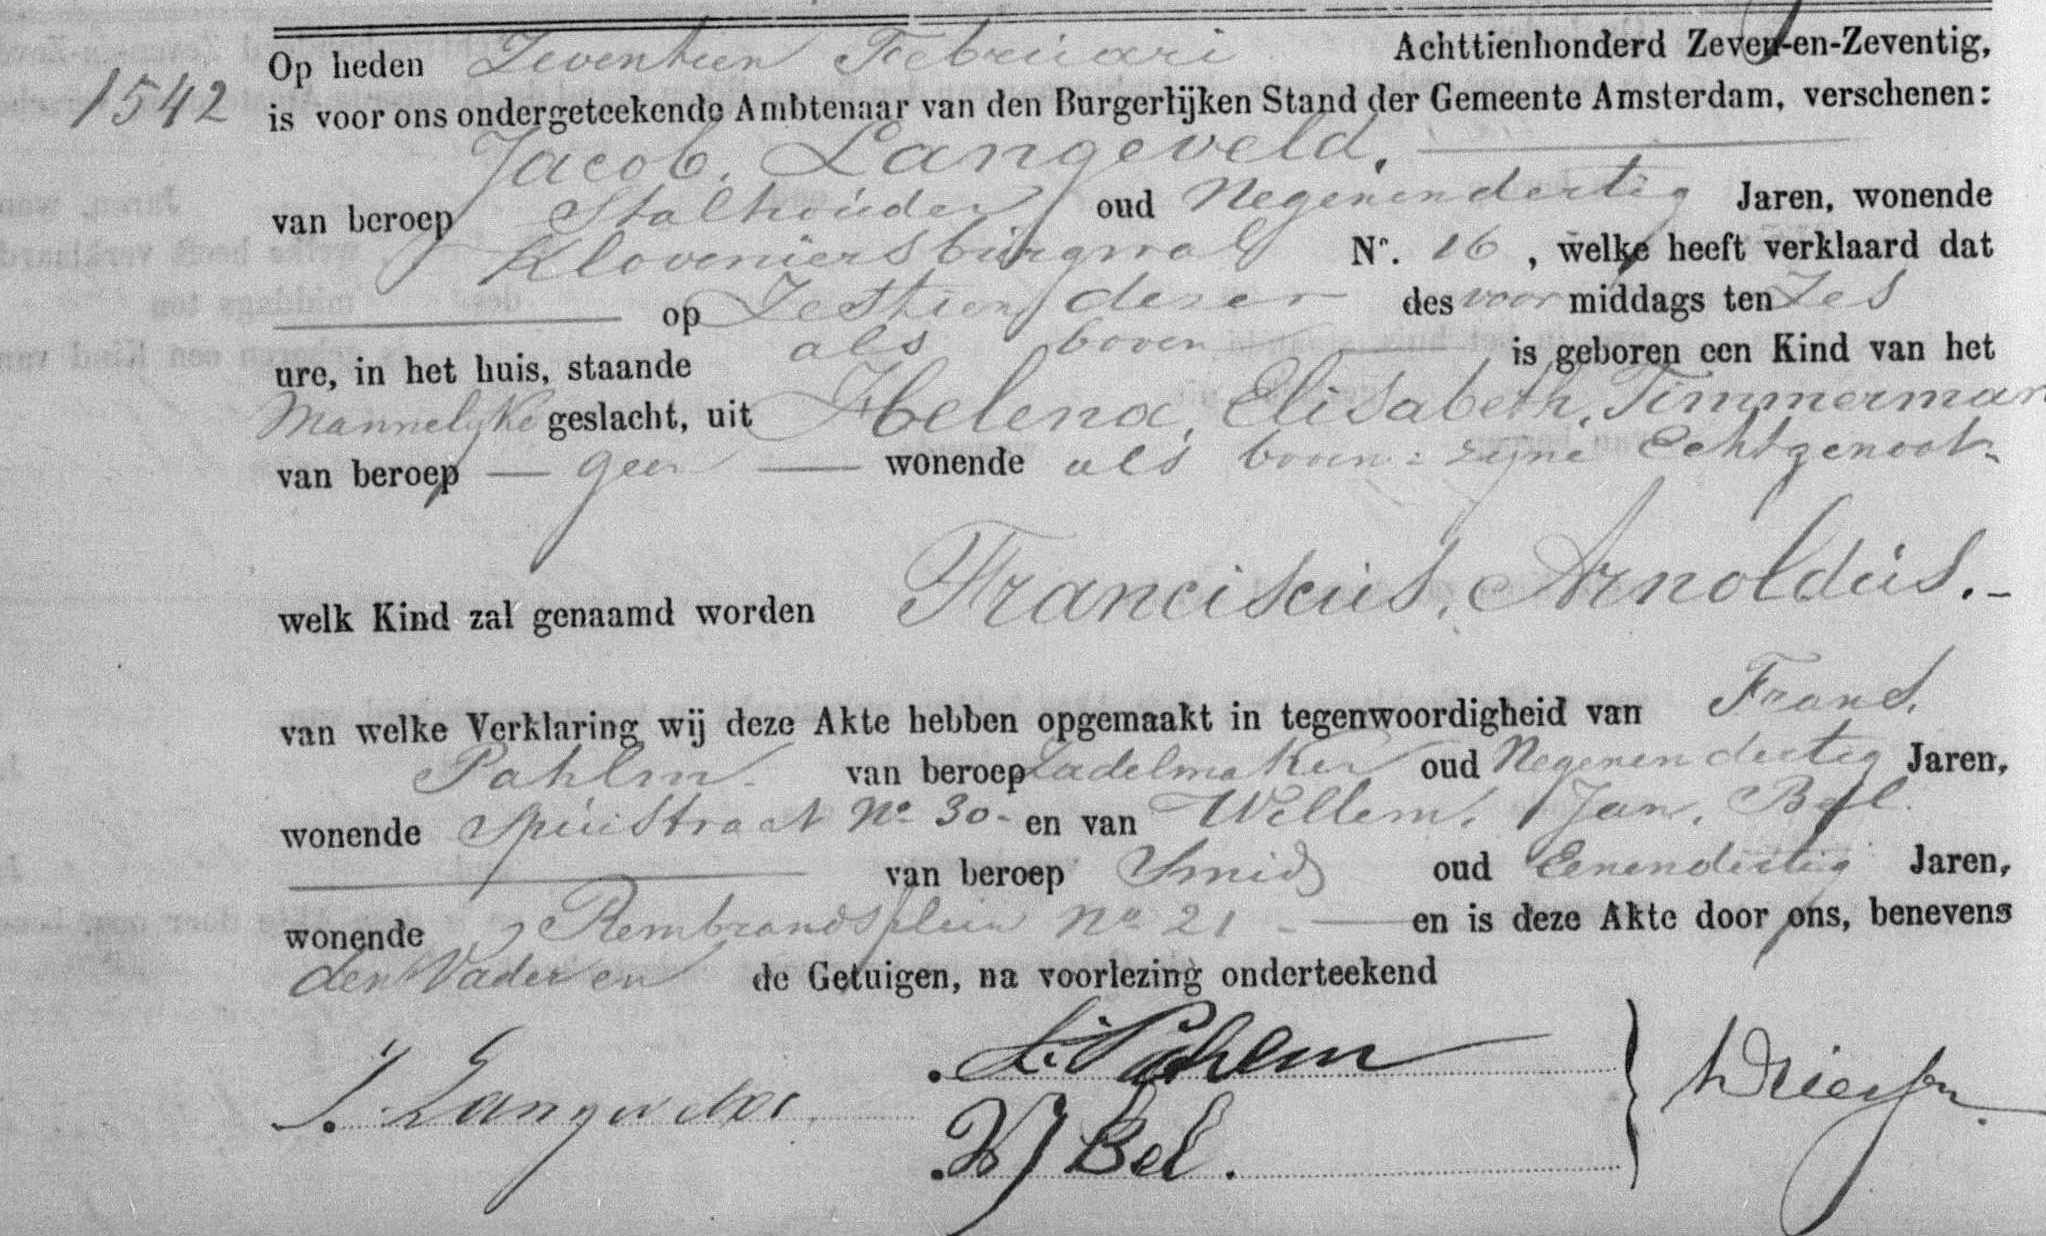 Op heden Zeventien Februari Achttienhonderd Zeven-en-Zeventig,
1542
is voor ons ondergeteekende Ambtenaar van den Burgerlijken Stand der Gemeente Amsterdam, verschenen:
Jacob, Langeveld,
van beroep Stalhouder oud Negenendertig Jaren, wonende
Kloveniersburgwal Nr. 16, welke heeft verklaard dat
op Zesthien dezer des voor middags ten Zes
ure, in het huis, staande als boven is geboren een Kind van het
Mannelyke geslacht, uit Helena, Elisabeth, Timmerman
van beroep geen wonende als boven: zyne Echtgenoot
welk Kind zal genaamd worden Franciscus, Arnoldus.-
van welke Verklaring wij deze Akte hebben opgemaakt in tegenwoordigheid van Frans,
Pahlm van beroep Zadelmaker oud Negenendertig Jaren,
wonende Spuistraat No 30- en van Willem, Jan, Bel
van beroep Smid oud Eenendertig Jaren,
wonende Rembrandsplein No 21 - en is deze Akte door ons, benevens
den Vader en de Getuigen, na voorlezing onderteekend
J. Langeveld
F. Pahlm
WJ Bel.